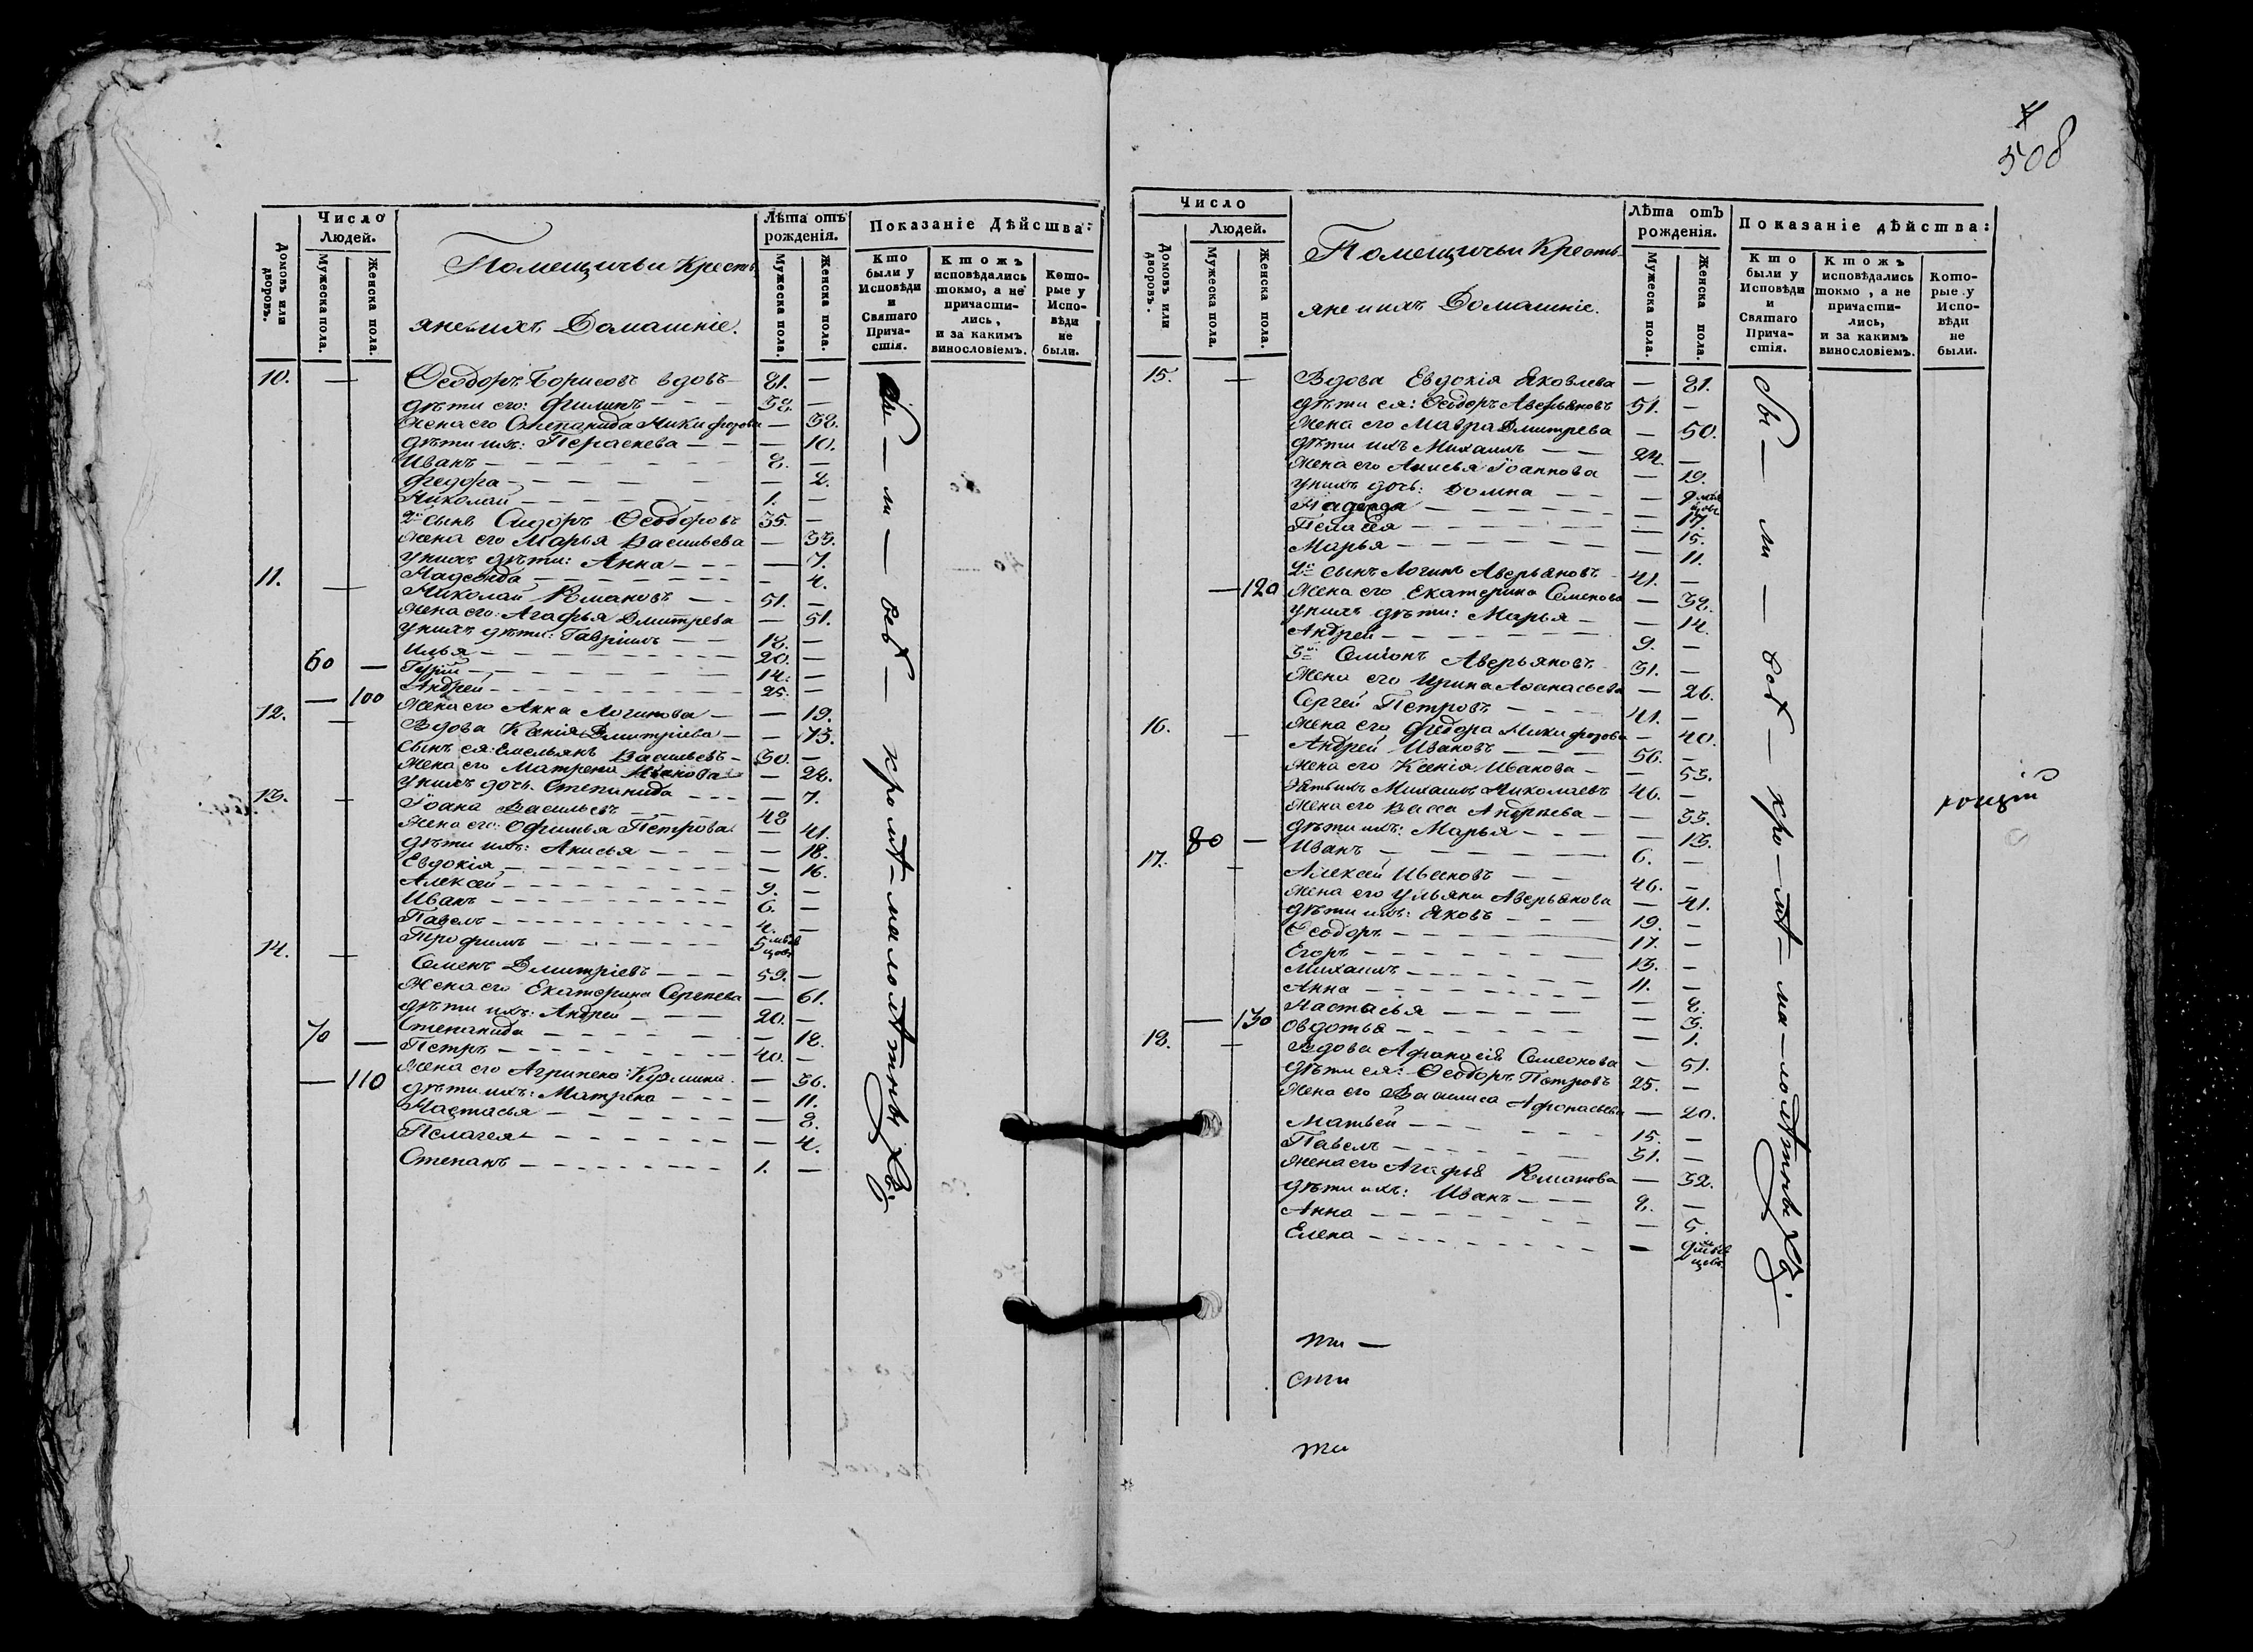 508
Число
Людей.
Домовъ или дворовъ.
Мужеска пола.
Женска пола.
Помещичьи Кресть
яне и ихъ Домашніе.
Лѣта отъ рожденія.
Мужеска пола.
Женска пола.
Показаніе Дѣйства:
Кто были у Исповѣди и Святаго Причастія.
Ктожъ исповѣдались токмо, а не причастились, и за какимъ винословіемъ.
Которые у Исповѣди не были.
10. — Ѳеодоръ Борисовъ вдовъ 81. —
дѣти его: Филипъ — — — 38. —
Жена его Степанида Никифорова — 38.
дѣти ихъ: Пераскева — — — 10.
Иванъ — — — 8. —
Федора — — — — 2.
Николай — — — 1. —
2й сынъ Сидоръ Ѳеодоровъ 35. —
Жена его Марья Васильева — 33.
у нихъ дѣти: Анна — — — 7.
Надежда — — — — 4.
11. — Николай Романовъ — — 51. —
Жена его: Агафья Дмитрева — 51.
у нихъ дѣти: Гавріилъ — — 18. —
Илья — — — 20. —
60 — Гурій — — — 14. —
Андрей — — — 25. —
— 100 Жена его Анна Логинова — — 19.
12. — Вдова Ксенія Дмитріева — — 73.
сынъ ея: Емельянъ Васильевъ — 30. —
Жена его Матрена Иванова — 28.
у нихъ дочь Степанида — — — 7.
13. — Іоана Васильевъ — — 48
Жена его: Офимья Петрова. — 41.
дѣти ихъ: Анисья — — — 18.
Евдокія — — — — 16.
Алексей — — — 9. —
Иванъ — — — 6. —
Павелъ — — — 4. —
Трофимъ — — — 5 мѣсяцовъ
14. — Семенъ Дмитріевъ — — — 59. —
Жена его Екатерина Сергеева — 61.
дѣти ихъ: Андрей — — — 20. —
Степанида — — — — 18.
70 — Петръ — — — 40. —
— 110 Жена его Агрипена: Кузмина. — 36.
дѣти ихъ: Матрена — — — 11.
Настасья — — — — 8.
Пелагея — — — — 4.
Степанъ — — — 1. —
бы — ли — всѣ — кромѣ — малолѣтныхъ
Число
Людей.
Домовъ или дворовъ.
Мужеска пола.
Женска пола.
Помещичьи Кресть
яне и ихъ Домашніе.
Лѣта отъ рожденія.
Мужеска пола.
Женска пола.
Показаніе дѣйства:
Кто были у Исповѣди и Святаго Причастія.
Ктожъ исповѣдались токмо, а не причастились, и за какимъ винословіемъ.
Которые у Исповѣди не были.
15. — Вдова Евдокія Яковлева — 81.
дѣти ея: Ѳеодоръ Аверьяновъ 51. —
Жена его Мавра Дмитрева — 50.
дѣти ихъ Михаилъ — — 24. —
Жена его Анисья Іоаннова — 19.
у нихъ дочь: Домна — — — 9 мѣсяцовъ
Надежда — — — — 17.
Пелагея — — — — 15.
Марья — — — — 11.
2й сынъ Логинъ Аверьяновъ 41. —
— 120 Жена его Екатерина Семенова — 38.
у нихъ дѣти: Марья — — 14.
Андрей — — — 9. —
3й Симіонъ Аверьяновъ 31. —
Жена его Ирина Аѳанасьева — 26.
Сергей Петровъ — — — 41. —
16. — Жена его Федора Никифорова — 40.
Андрей Ивановъ — — — 56. —
Жена его Ксенія Иванова — — 53.
Зятьихъ Михаилъ Николаевъ 46. —
Жена его Васса Андрѣева — — 33.
80 — дѣти ихъ: Марья — — — 13.
Иванъ — — — 6. —
17. — Алексей Ивановъ — — 46. —
Жена его Ульяна Аверьянова — 41.
дѣти ихъ: Яковъ — — — 19. —
Ѳеодоръ — — — 17. —
Егоръ — — — 13. —
Михаилъ — — — 11. —
Анна — — — — 8.
Настасья — — — — 3.
— 130 Овдотья — — — — 1.
18. — Вдова Афанасія Симеонова — 51.
дѣти ея: Ѳеодоръ Петровъ 25. —
Жена его Васлиса Афонасьева — 20.
Матвей — — — 15. —
Павелъ — — — 31. —
Жена его Агафья Романова — 32.
дѣти ихъ: Иванъ — — — 8. —
Анна — — — — 5.
Елена — — — — 9 мѣсяцовъ
бы — ли — всѣ — кро — мѣ — ма — лолѣтныхъ
ти —
сти
ти